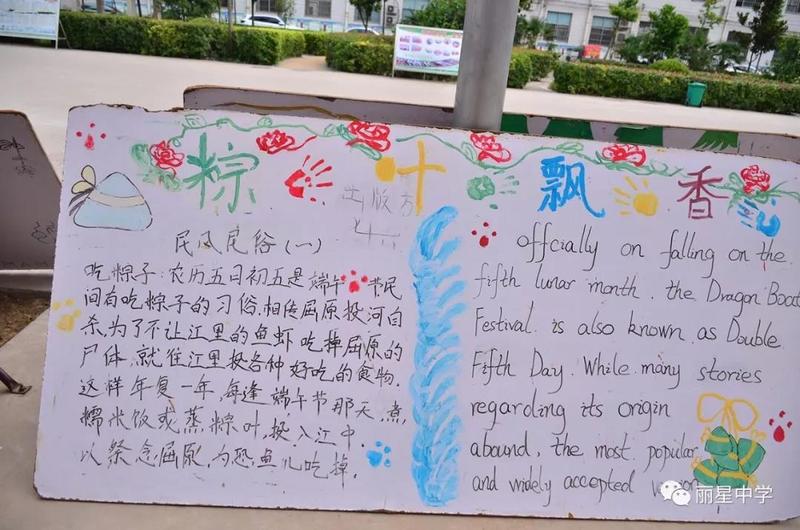 粽叶飘香
出版方
民风民俗(一)
吃粽子:农历五日初五是端午节民
间有吃粽子的习俗,相传屈原投河自
杀,为了不让江里的鱼虾吃掉屈原的
尸体,就往江里投各种好吃的食物.
这样年复一年,每逢端午节那天,煮
糯米饭或蒸粽叶,投入江中.
以祭念屈原,为恐鱼儿吃掉.
offcially on falling on the
fifth lunar month. the Dragon Boat
Festival. is also known. as Double
Fifth Day. While. many stories
regarding its origin
abound, the most popular
and widely accepted
丽星中学